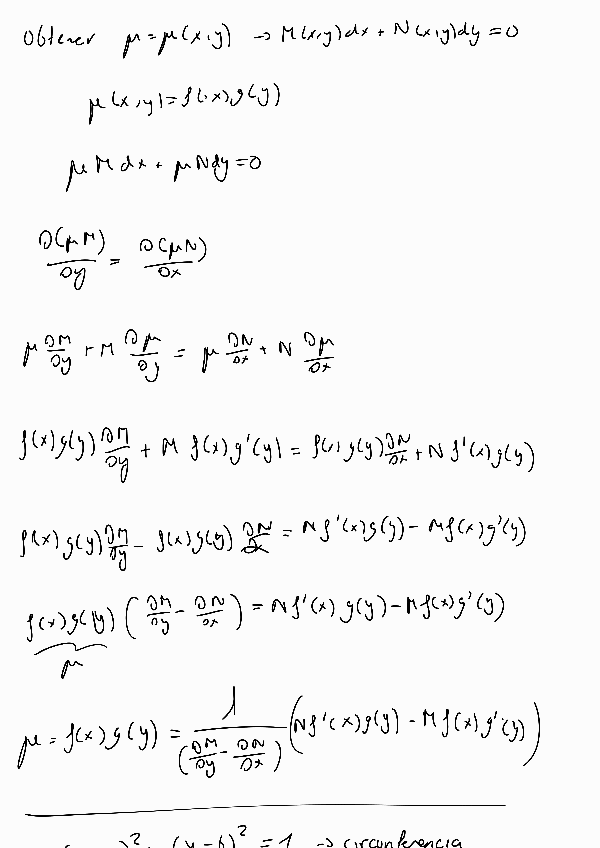 Obtener μ=μ(x,y) → M(x,y)dx + N(x,y)dy = 0
μ(x,y) = f(x)g(y)
μMdx + μNdy = 0
∂(μM)/∂y = ∂(μN)/∂x
μ ∂M/∂y + M ∂μ/∂y = μ ∂N/∂x + N ∂μ/∂x
f(x)g(y) ∂M/∂y + M f(x)g'(y) = f(x)g(y) ∂N/∂x + N f'(x)g(y)
f(x)g(y) ∂M/∂y - f(x)g(y) ∂N/∂x = N f'(x)g(y) - M f(x)g'(y)
f(x)g(y) (∂M/∂y - ∂N/∂x) = N f'(x)g(y) - M f(x)g'(y)
μ
μ = f(x)g(y) = 1/(∂M/∂y - ∂N/∂x) (N f'(x)g(y) - M f(x)g'(y))
)² (y-6)² = 1 → circunferencia